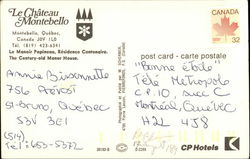 Le Château
Montebello
Montebello, Québec,
Canada J0V 1L0
Tél. (819) 423-6341
Le Manoir Papineau, Résidence Centenaire.
The Century-old Manor House.
CANADA
32
post card - carte postale
Annie Bissonnette
756 Prévost
St-Bruno, Québec
S3V 3E1
(514)
Tel: 653-5372
"Bonne étoile"
Télé Metropole
C.P. 10, succ C
Montréal, Québec
H2L 4J8
CP Hotels